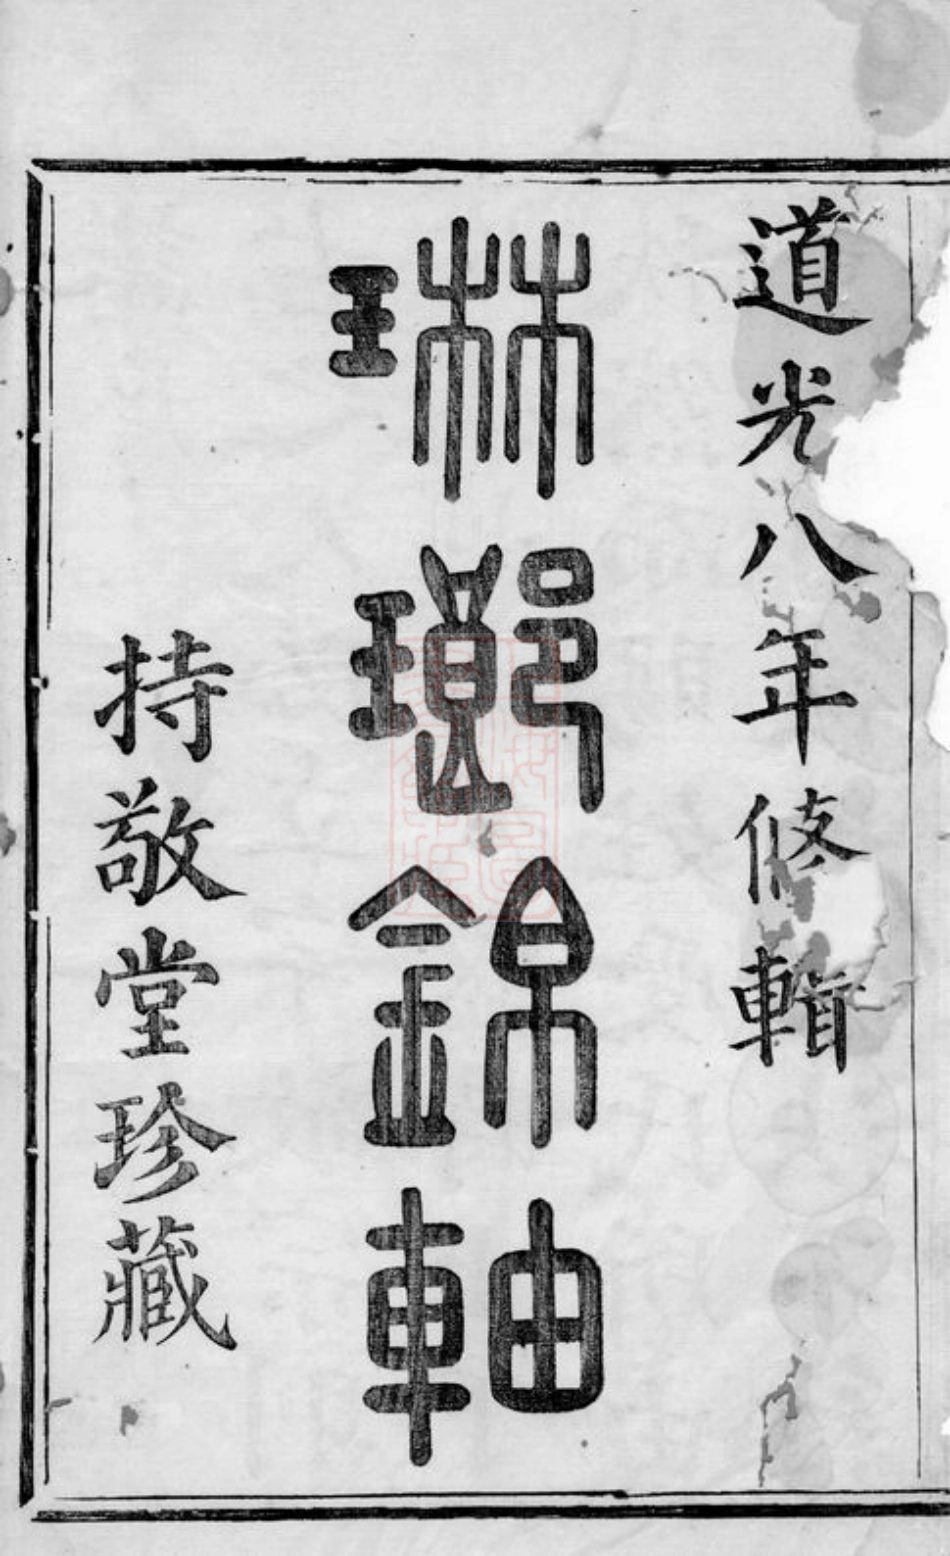 道光八年修輯
琳瑯錦軸
持敬堂珍藏